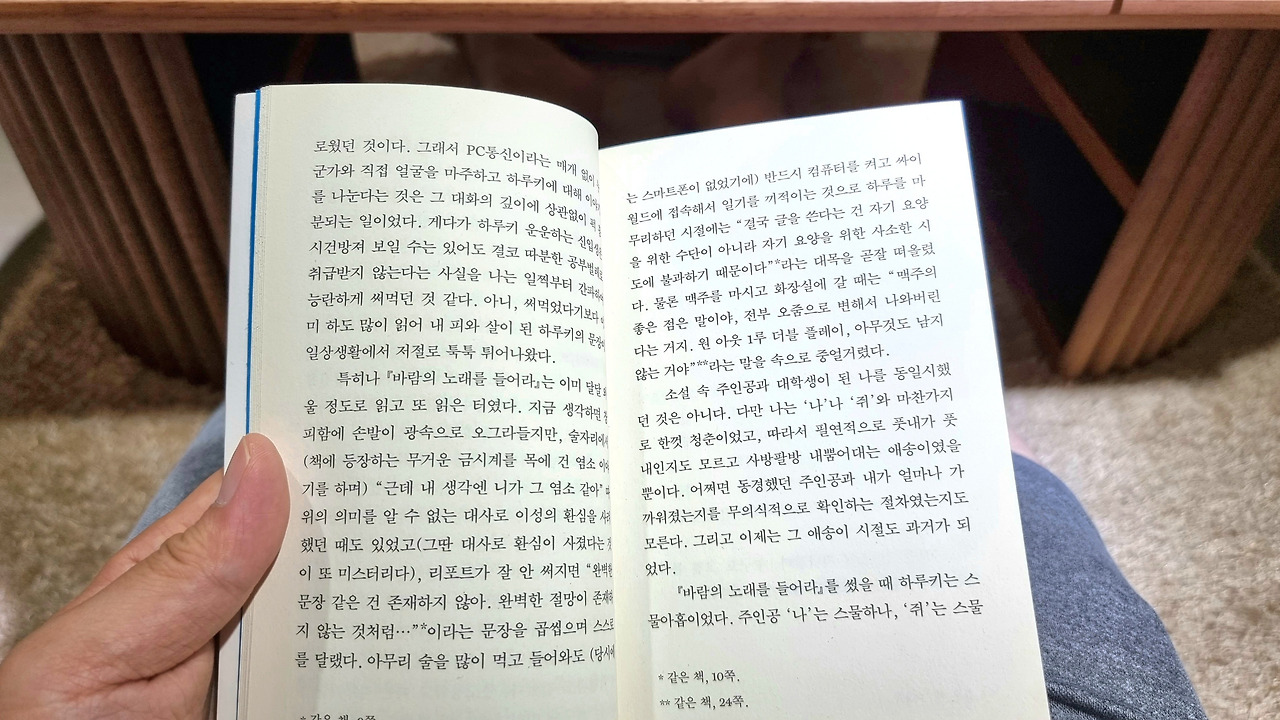 로웠던 것이다. 그래서 PC통신이라는 매개 없이
군가와 직접 얼굴을 마주하고 하루키에 대해
를 나눈다는 것은 그 대화의 깊이에 상관없이
분되는 일이었다. 게다가 하루키 운운하는
시건방져 보일 수는 있어도 결코 따분한
취급받지 않는다는 사실을 나는 일찍부터
능란하게 써먹던 것 같다. 아니, 써먹었다기보다
미 하도 많이 읽어 내 피와 살이 된 하루키의
일상생활에서 저절로 툭툭 튀어나왔다.
특히나 『바람의 노래를 들어라』는 이미 달달
울 정도로 읽고 또 읽은 터였다. 지금 생각하면
피함에 손발이 광속으로 오그라들지만, 술자리에서
(책에 등장하는 무거운 금시계를 목에 건 염소
기를 하며) “근데 내 생각엔 니가 그 염소 같아”
위의 의미를 알 수 없는 대사로 이성의 환심을
했던 때도 있었고(그딴 대사로 환심이 사졌다는
이 또 미스터리다), 리포트가 잘 안 써지면 “완벽한
문장 같은 건 존재하지 않아. 완벽한 절망이 존재하
지 않는 것처럼…”*이라는 문장을 곱씹으며 스스로
를 달랬다. 아무리 술을 많이 먹고 들어와도 (당시에
는 스마트폰이 없었기에) 반드시 컴퓨터를 켜고 싸이
월드에 접속해서 일기를 끼적이는 것으로 하루를 마
무리하던 시절에는 “결국 글을 쓴다는 건 자기 요양
을 위한 수단이 아니라 자기 요양을 위한 사소한 시
도에 불과하기 때문이다”*라는 대목을 곧잘 떠올렸
다. 물론 맥주를 마시고 화장실에 갈 때는 “맥주의
좋은 점은 말이야, 전부 오줌으로 변해서 나와버린
다는 거지. 원 아웃 1루 더블 플레이, 아무것도 남지
않는 거야”**라는 말을 속으로 중얼거렸다.
소설 속 주인공과 대학생이 된 나를 동일시했
던 것은 아니다. 다만 나는 ‘나’나 ‘쥐’와 마찬가지
로 한껏 청춘이었고, 따라서 필연적으로 풋내가 풋
내인지도 모르고 사방팔방 내뿜어대는 애송이였을
뿐이다. 어쩌면 동경했던 주인공과 내가 얼마나 가
까워졌는지를 무의식적으로 확인하는 절차였는지도
모른다. 그리고 이제는 그 애송이 시절도 과거가 되
었다.
『바람의 노래를 들어라』를 썼을 때 하루키는 스
물아홉이었다. 주인공 ‘나’는 스물하나, ‘쥐’는 스물
* 같은 책, 10쪽.
** 같은 책, 24쪽.